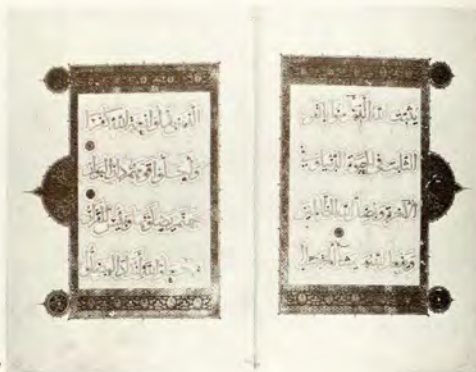 يثبت الله الذين آمنوا بالقول
الثابت في الحيوة الدنيا وفي
الآخرة ويضل الله الظالمين
ويفعل الله ما يشاء ألم تر إلى
الذين بدلوا نعمة الله كفرا
وأحلوا قومهم دار البوار
جهنم يصلونها وبئس القرار
وجعلوا لله أندادا ليضلوا